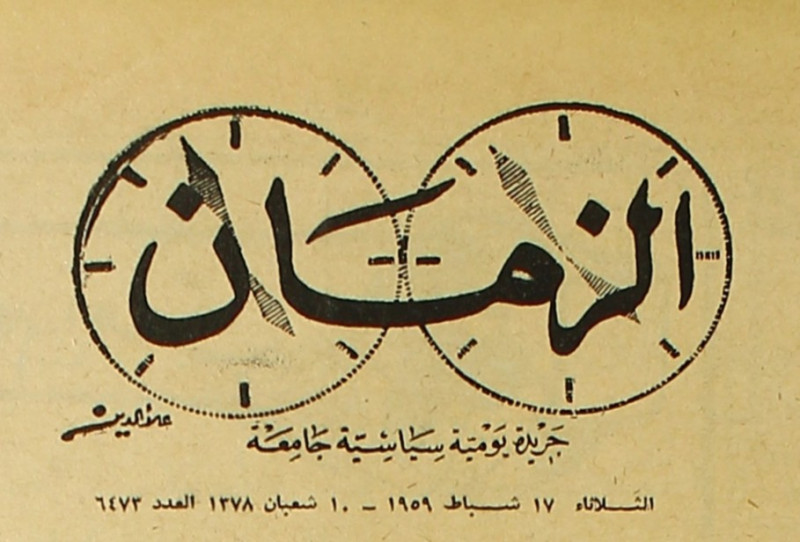 الزمان
علاء الدين
جريدة يومية سياسية جامعة
الثلاثاء ١٧ شباط ١٩٥٩ – ١٠ شعبان ١٣٧٨ العدد ٦٤٧٣